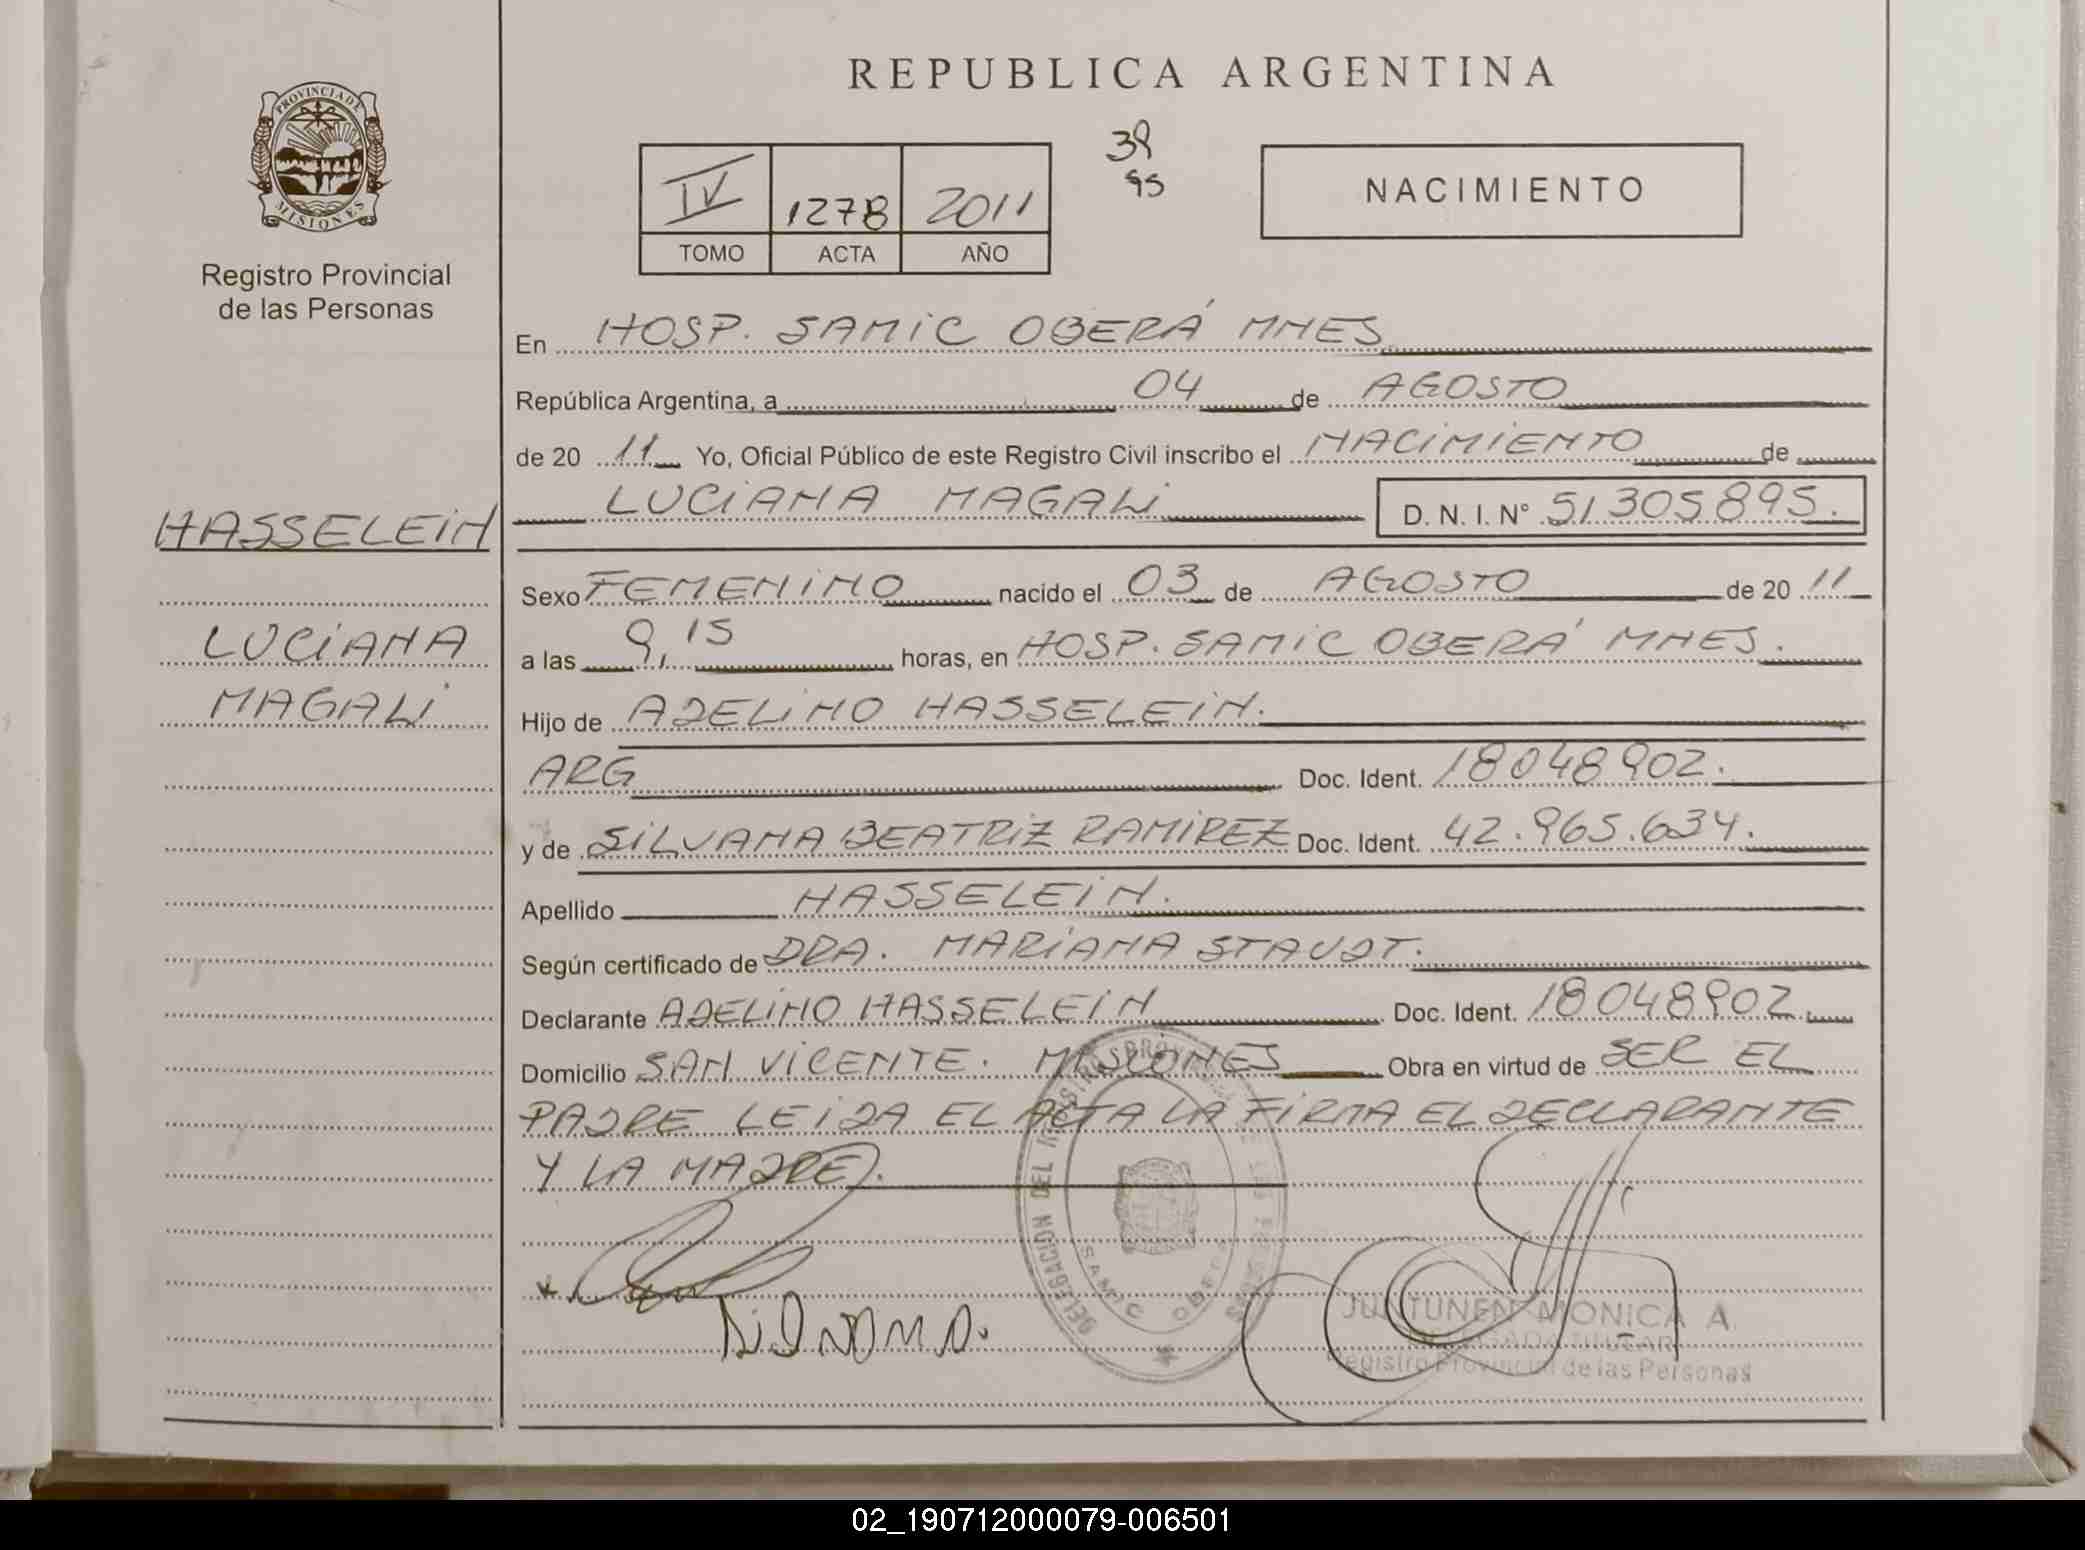 REPUBLICA ARGENTINA
PROVINCIA DE
MISIONES
Registro Provincial
de las Personas
IV 1278 2011
TOMO ACTA AÑO
39
95
NACIMIENTO
En HOSP. SAMIC OBERÁ MNES
República Argentina, a 04 de AGOSTO
de 20 11 Yo, Oficial Público de este Registro Civil inscribo el NACIMIENTO de
LUCIANA MAGALI D. N. I. N° 51305895.
HASSELEIN
LUCIANA
MAGALI
Sexo FEMENINO nacido el 03 de AGOSTO de 20 11
a las 9,15 horas, en HOSP. SAMIC OBERÁ MNES.
Hijo de ADELINO HASSELEIN.
ARG Doc. Ident. 18048902.
y de SILVANA BEATRIZ RAMIREZ Doc. Ident. 42.965.634.
Apellido HASSELEIN.
Según certificado de DRA. MARIANA STAUDT.
Declarante ADELINO HASSELEIN Doc. Ident. 18048902.
Domicilio SAN VICENTE. MISIONES Obra en virtud de SER EL
PADRE LEIDA EL ACTA LA FIRMA EL DECLARANTE
Y LA MADRE.
Silvana.
DELEGACION DEL REGISTRO PROVINCIAL DE LAS PERSONAS
SAMIC OBERA
JUNTUNEN MONICA A.
DELEGADA TITULAR
Registro Provincial de las Personas
02_190712000079-006501